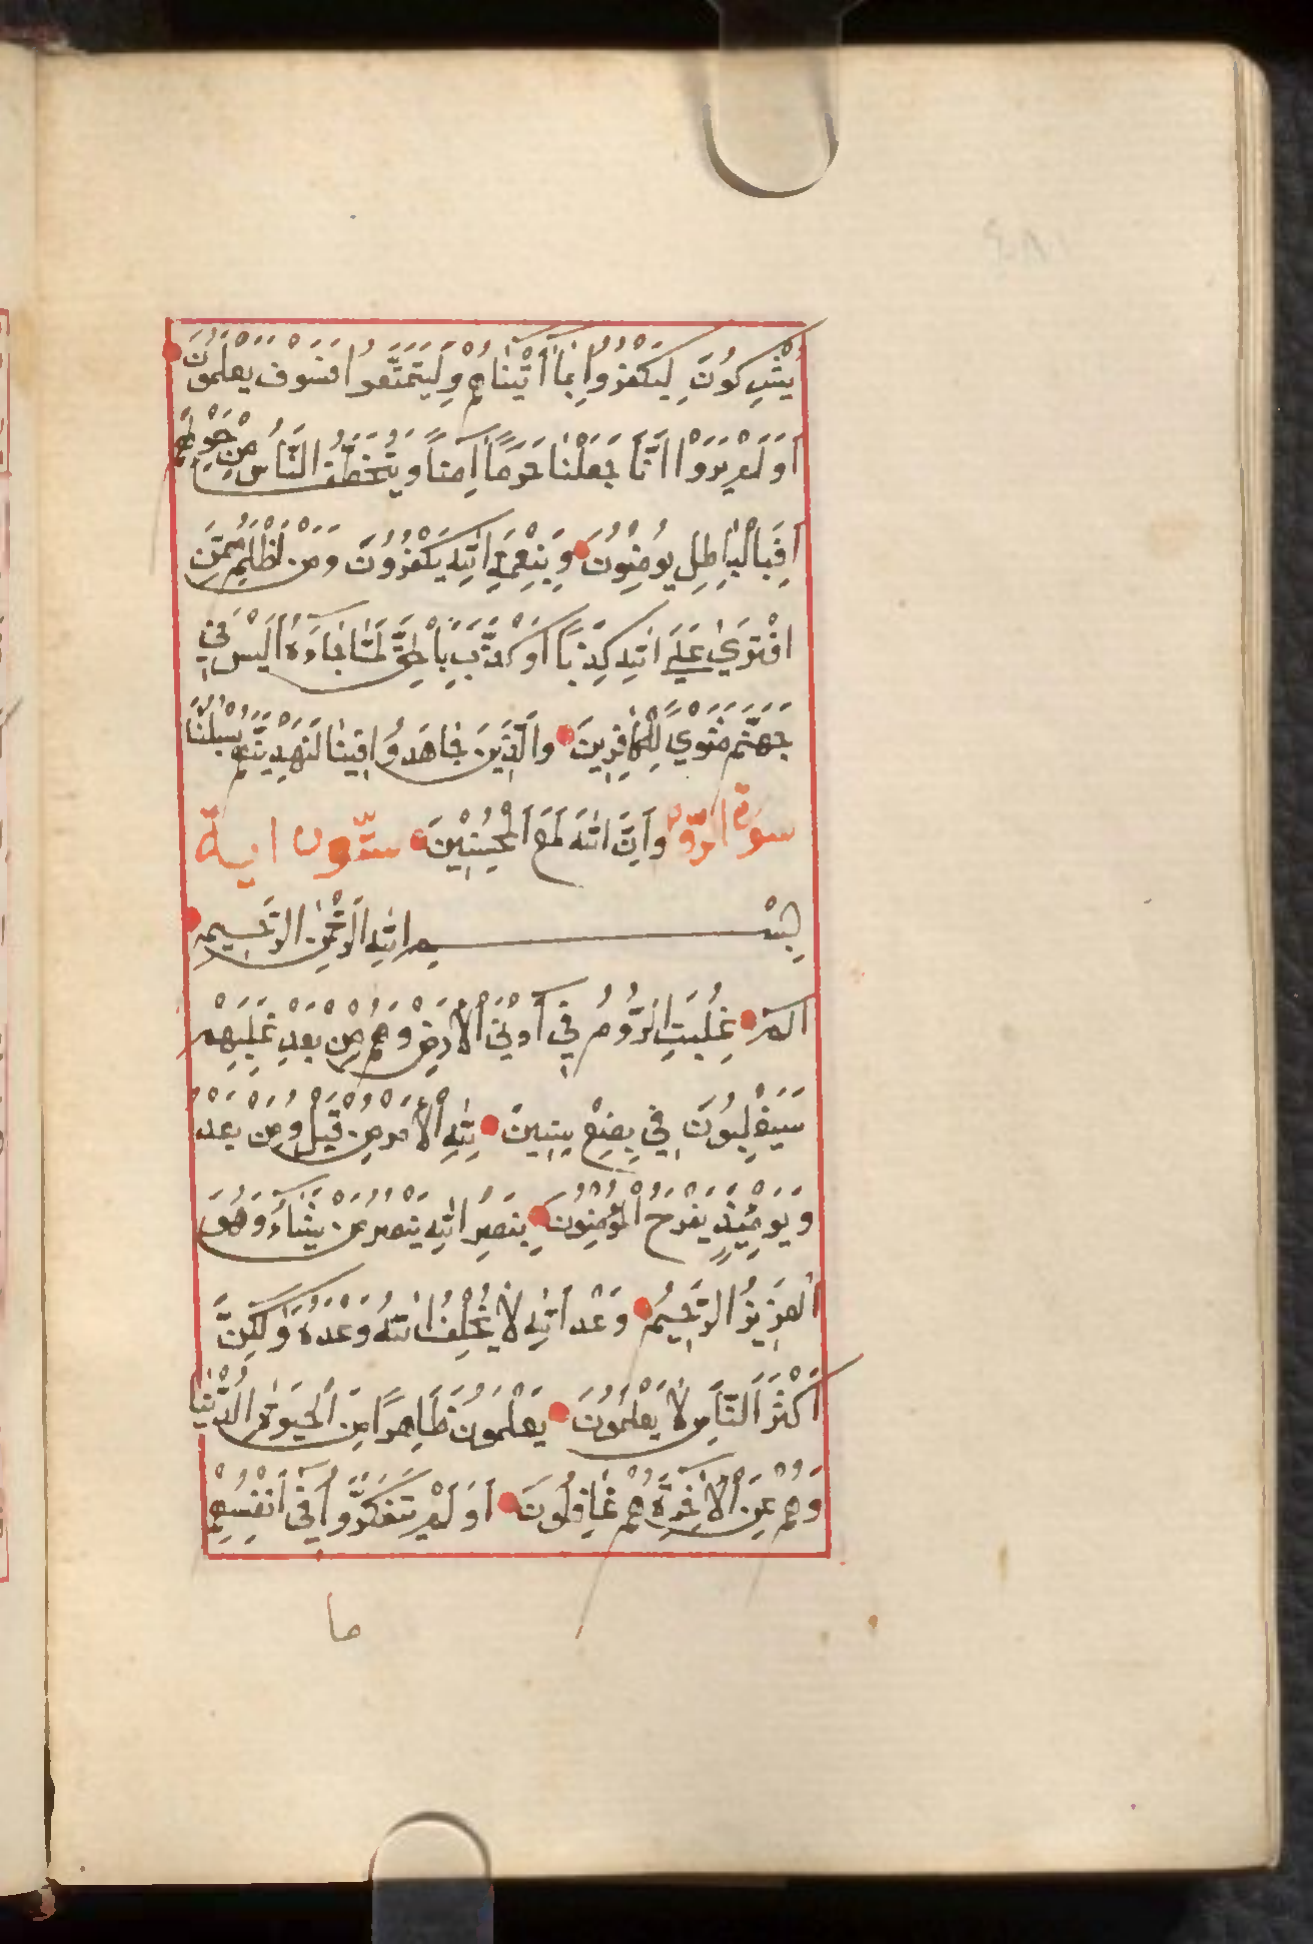 يُشْرِكُونَ لِيَكْفُرُوا بِمَا اٰتَيْنَاهُمْ وَلِيَتَمَتَّعُوا فَسَوْفَ يَعْلَمُونَ
اَوَلَمْ يَرَوْا اَنَّا جَعَلْنَا حَرَمًا اٰمِنًا وَيُتَخَطَّفُ النَّاسُ مِنْ حَوْلِهِمْ
اَفَبِالْبَاطِلِ يُؤْمِنُونَ وَبِنِعْمَةِ اللّٰهِ يَكْفُرُونَ وَمَنْ اَظْلَمُ مِمَّنِ
افْتَرَىٰ عَلَى اللّٰهِ كَذِبًا اَوْ كَذَّبَ بِالْحَقِّ لَمَّا جَاءَهُ اَلَيْسَ فِي
جَهَنَّمَ مَثْوًي لِلْكَافِرِينَ وَالَّذِينَ جَاهَدُوا فِينَا لَنَهْدِيَنَّهُمْ سُبُلَنَا
سورة الروم وَاِنَّ اللّٰهَ لَمَعَ الْمُحْسِنِينَ ستّون اية
بِسْمِ اللّٰهِ الرَّحْمٰنِ الرَّحِيمِ
الٓمٓ غُلِبَتِ الرُّومُ فِي اَدْنَي الْاَرْضِ وَهُمْ مِنْ بَعْدِ غَلَبِهِمْ
سَيَغْلِبُونَ فِي بِضْعِ سِنِينَ لِلّٰهِ الْاَمْرُ مِنْ قَبْلُ وَمِنْ بَعْدُ
وَيَوْمَئِذٍ يَفْرَحُ الْمُؤْمِنُونَ بِنَصْرِ اللّٰهِ يَنْصُرُ مَنْ يَشَاءُ وَهُوَ
الْعَزِيزُ الرَّحِيمُ وَعْدَ اللّٰهِ لَا يُخْلِفُ اللّٰهُ وَعْدَهُ وَلٰكِنَّ
اَكْثَرَ النَّاسِ لَا يَعْلَمُونَ يَعْلَمُونَ ظَاهِرًا مِنَ الْحَيٰوةِ الدُّنْيَا
وَهُمْ عَنِ الْاٰخِرَةِ هُمْ غَافِلُونَ اَوَلَمْ يَتَفَكَّرُوا فِي اَنْفُسِهِمْ
ما